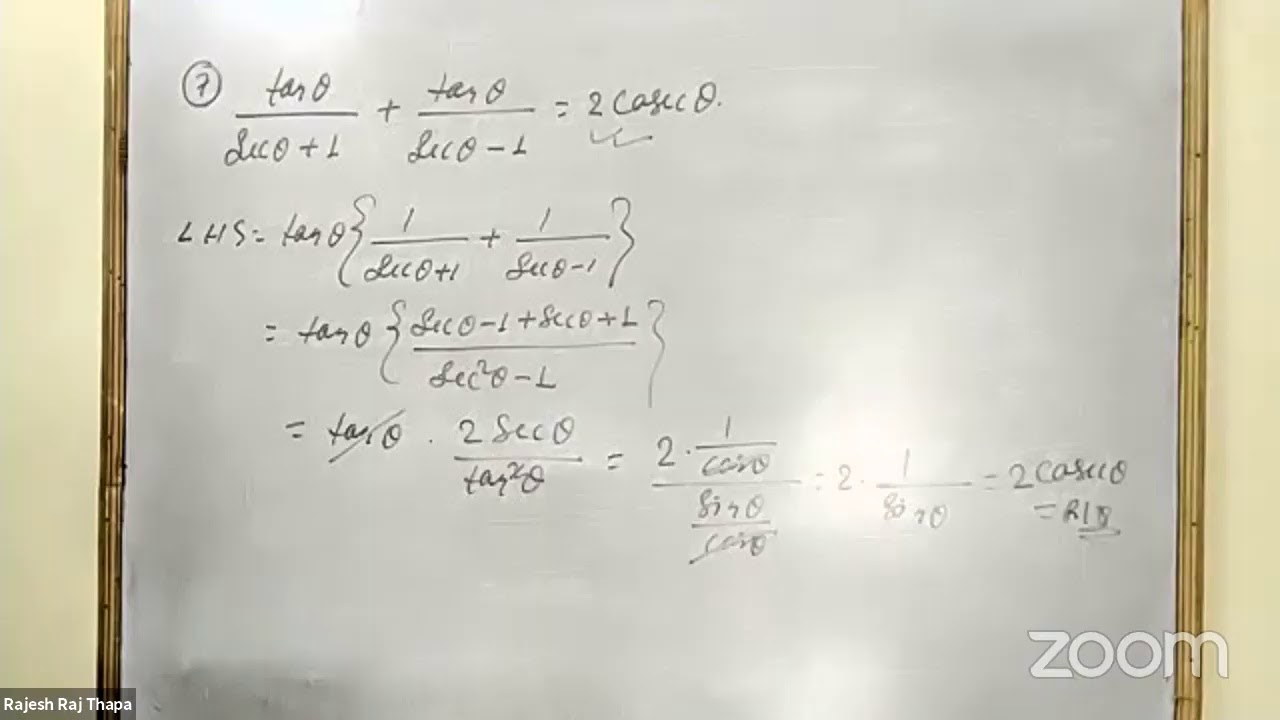 ⑦ tanθ/(Secθ+1) + tanθ/(Secθ-1) = 2Cosecθ.
LHS = tanθ{1/(Secθ+1) + 1/(Secθ-1)}
= tanθ{(Secθ-1+Secθ+1)/(Sec²θ-1)}
= tanθ · 2Secθ/tan²θ = (2·1/cosθ)/(Sinθ/cosθ) = 2·1/Sinθ = 2Cosecθ
= RHS
zoom
Rajesh Raj Thapa